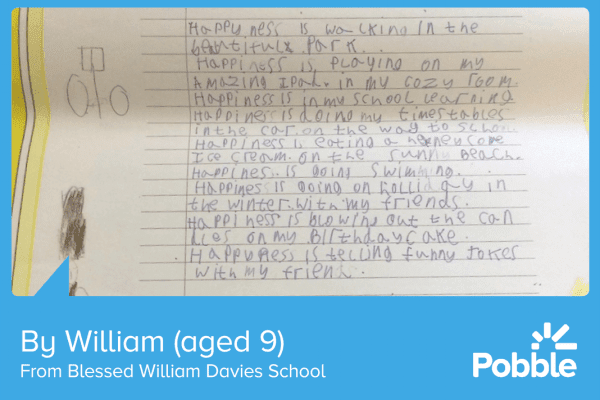 Happyness is walking in the
beautitulx Park.
Happiness is Playing on my
Amazing Ipad. in my cozy room.
Happiness is in my school learning
Happiness is doing my timestables
in the car. on the way to school
Happiness is eating a honeycone
Ice cream. on the sunny Beach.
Happiness. is going swimming.
Happiness is going on holliday in
the winter. with my friends.
Happiness is blowing out the can
dles on my Birthday cake.
Happyness is telling funny Jokes
with my friend.
By William (aged 9)
From Blessed William Davies School
Pobble